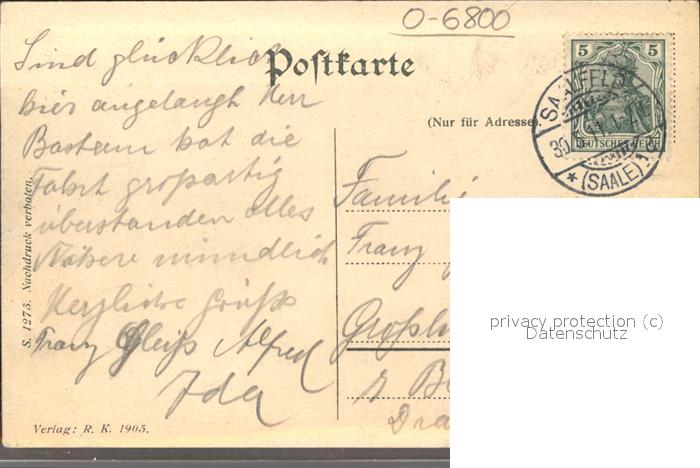 O-6800
Postkarte
(Nur für Adresse).
5 5
DEUTSCHES REICH
SAALFELD
30
* (SAALE)
Sind glücklich
hier angelangt Herr
hat die
Fahrt großartig
überstanden alles
Nähere mündlich
Herzliche Grüße
Franz Alfred
Ida
Familie
Franz
S. 1275. Nachdruck verboten.
Verlag: R. K. 1905.
privacy protection (c)
Datenschutz